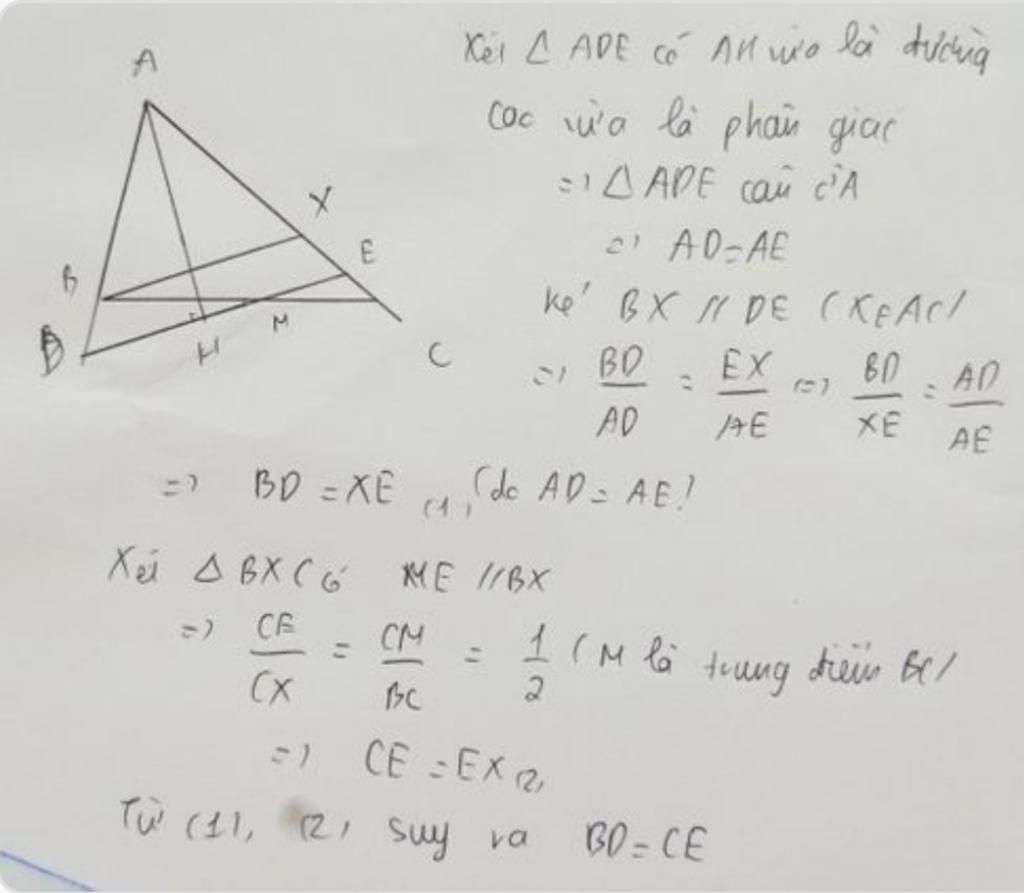 A
X
E
B
D
H
M
C
Xét △ ADE có AH vừa là đường
cao vừa là phân giác
=> △ ADE cân ở A
=> AD = AE
Kẻ BX // DE (X ∈ AC)
=> BD/AD = EX/AE => BD/XE = AD/AE
=> BD = XE (1) (do AD = AE)
Xét △ BXC có ME // BX
=> CE/CX = CM/BC = 1/2 (M là trung điểm BC)
=> CE = EX (2)
Từ (1), (2) suy ra BD = CE